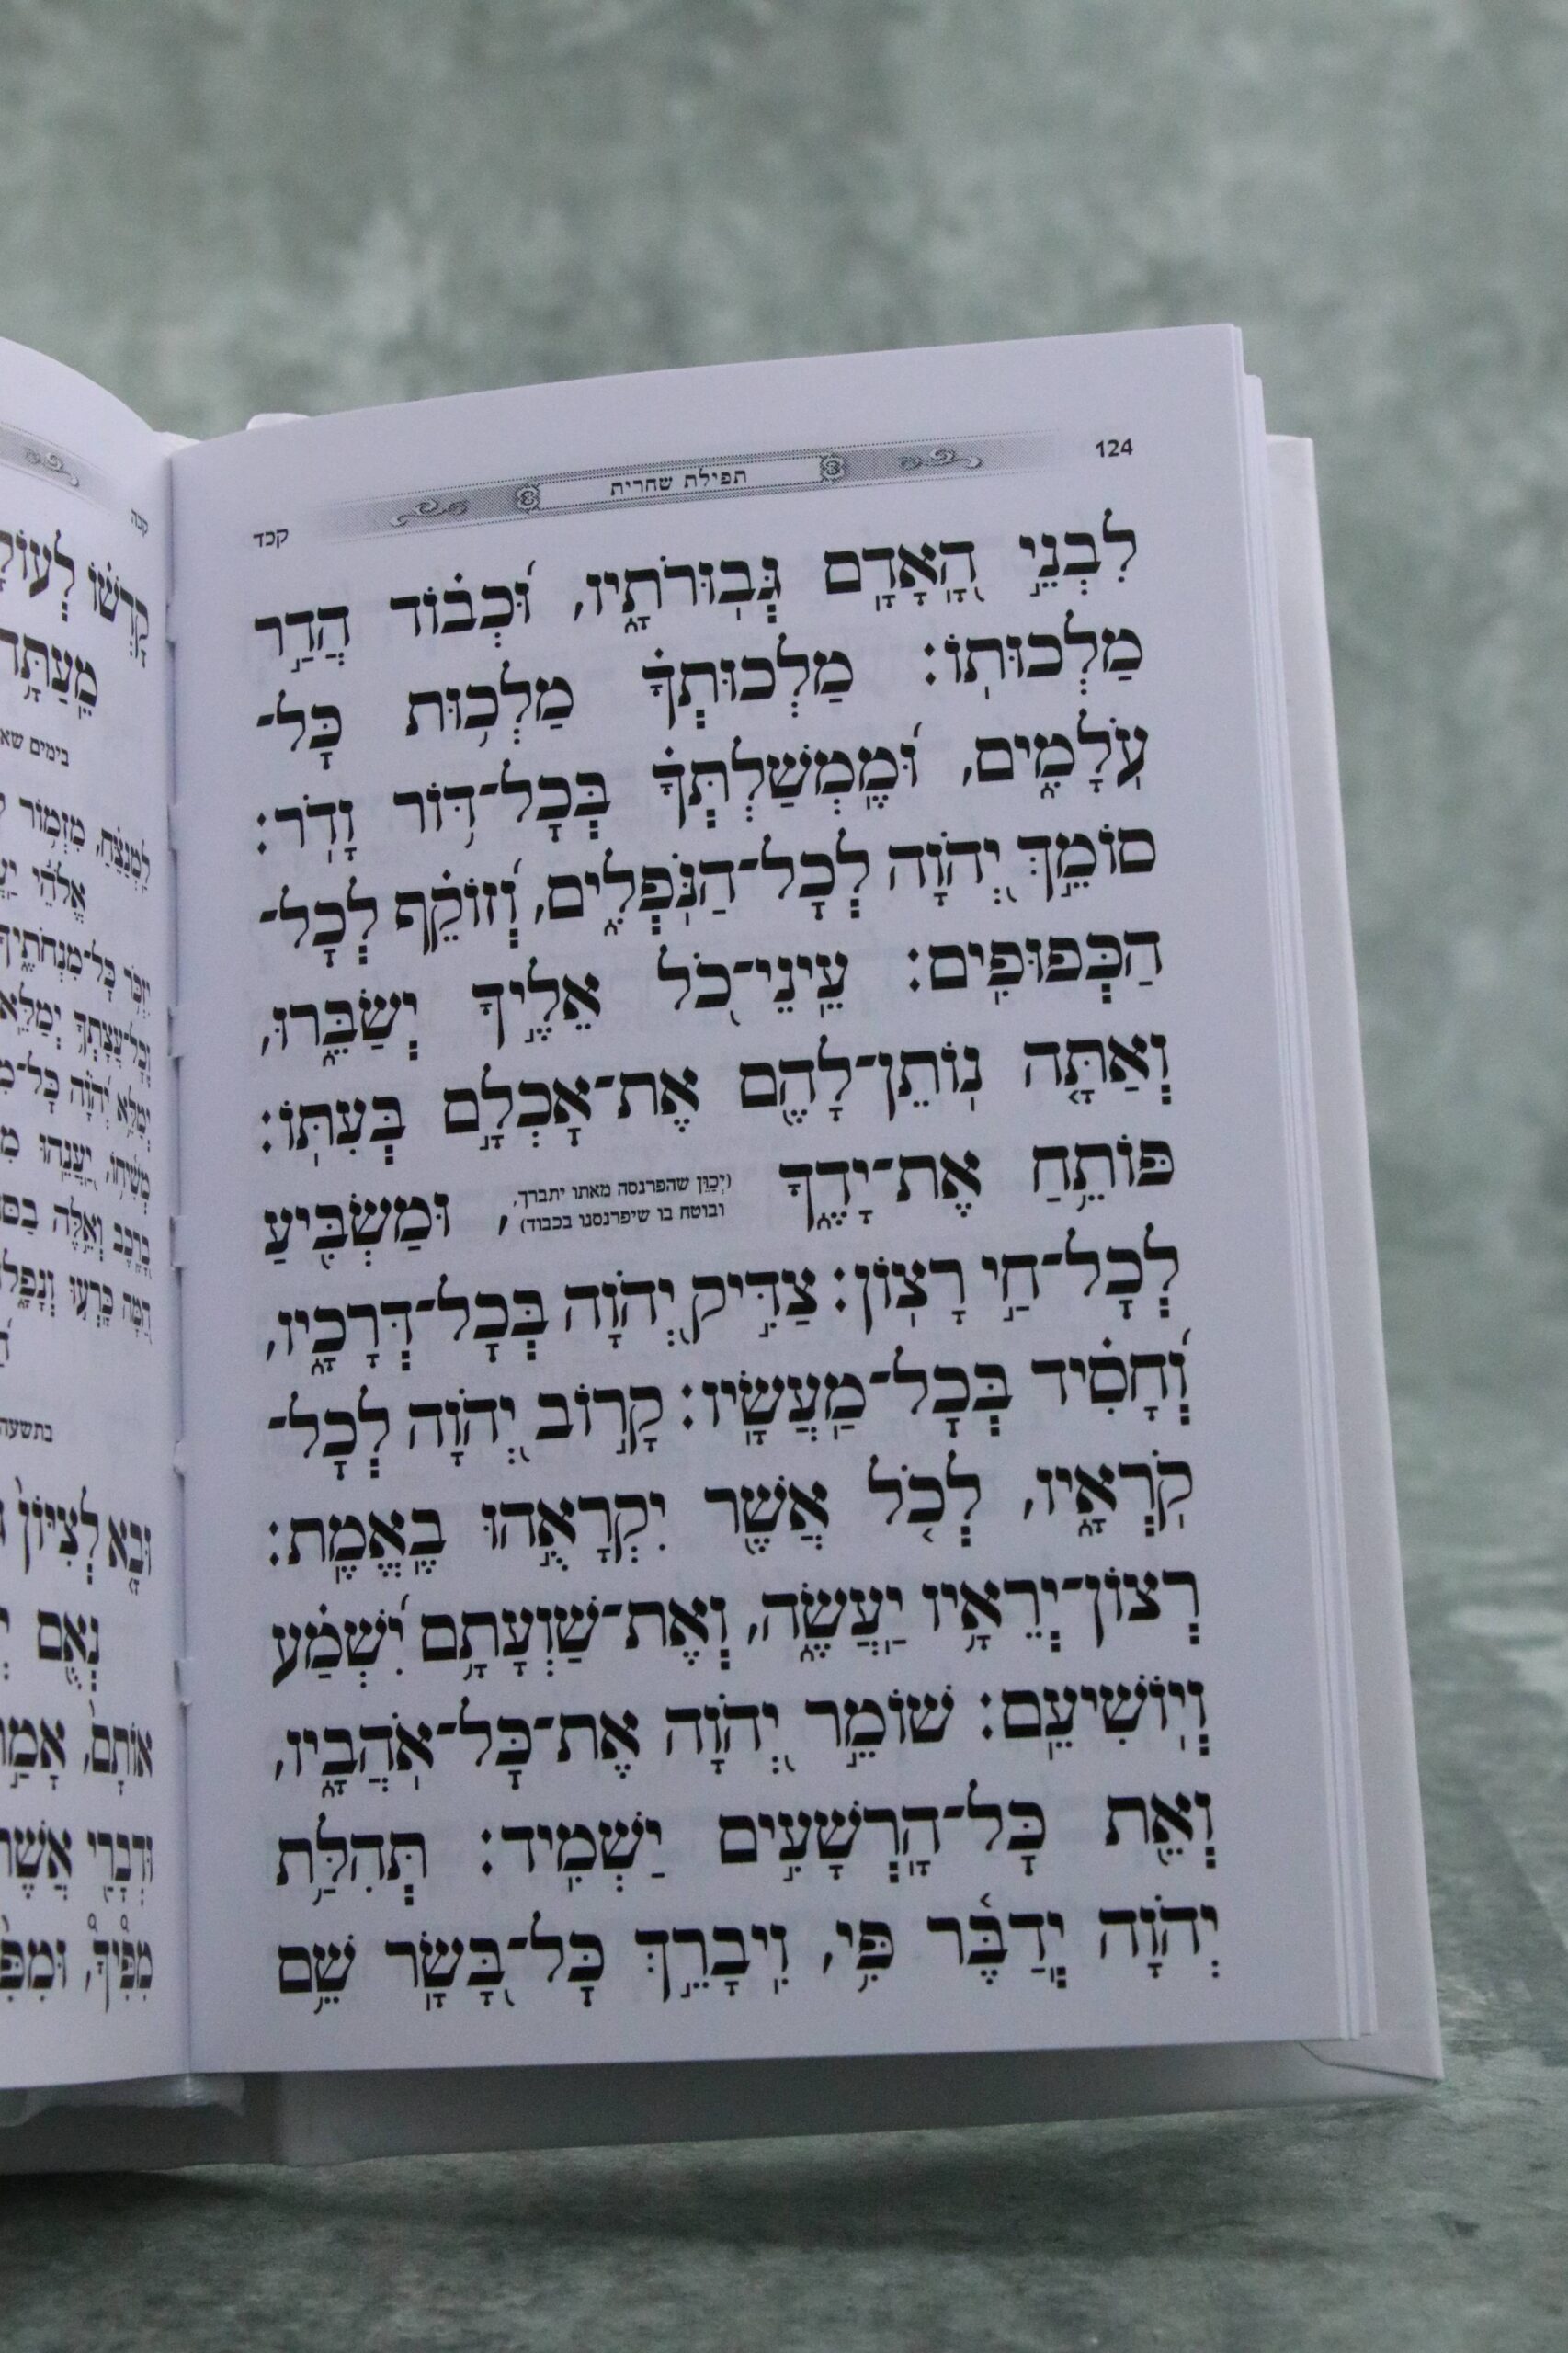 124
תפילת שחרית
קכד
לִבְנֵ֣י הָ֭אָדָם גְּבוּרֹתָ֑יו, וּ֝כְב֗וֹד הֲדַ֣ר
מַלְכוּתֽוֹ׃ מַֽלְכוּתְךָ֗ מַלְכ֥וּת כׇּל־
עֹלָמִ֑ים, וּ֝מֶמְשַׁלְתְּךָ֗ בְּכׇל־דּ֥וֹר וָדֹֽר׃
סוֹמֵ֣ךְ יְ֭הֹוָה לְכׇל־הַנֹּפְלִ֑ים, וְ֝זוֹקֵ֗ף לְכׇל־
הַכְּפוּפִֽים׃ עֵֽינֵי־כֹ֭ל אֵלֶ֣יךָ יְשַׂבֵּ֑רוּ,
וְאַתָּ֤ה נֽוֹתֵן־לָהֶ֖ם אֶת־אׇכְלָ֣ם בְּעִתּֽוֹ׃
פּוֹתֵ֥חַ אֶת־יָדֶ֑ךָ
(יְכַוֵּן שהפרנסה מאתו יתברך,
ובוטח בו שיפרנסנו בכבוד)
, וּמַשְׂבִּ֖יעַ
לְכׇל־חַ֣י רָצֽוֹן׃ צַדִּ֣יק יְ֭הֹוָה בְּכׇל־דְּרָכָ֑יו,
וְ֝חָסִ֗יד בְּכׇל־מַעֲשָֽׂיו׃ קָר֣וֹב יְ֭הֹוָה לְכׇל־
קֹרְאָ֑יו, לְכֹ֤ל אֲשֶׁ֖ר יִקְרָאֻ֣הוּ בֶאֱמֶֽת׃
רְצוֹן־יְרֵאָ֥יו יַעֲשֶׂ֑ה, וְֽאֶת־שַׁוְעָתָ֥ם יִ֝שְׁמַ֗ע
וְיוֹשִׁיעֵֽם׃ שׁוֹמֵ֣ר יְ֭הֹוָה אֶת־כׇּל־אֹהֲבָ֑יו,
וְאֵ֖ת כׇּל־הָרְשָׁעִ֣ים יַשְׁמִֽיד׃ תְּהִלַּ֥ת
יְהֹוָ֗ה יְֽדַבֶּ֫ר פִּ֥י, וִיבָרֵ֣ךְ כׇּל־בָּ֭שָׂר שֵׁ֥ם
קכה
בימים שא
וּבָ֤א לְצִיּוֹן֙
נְאֻ֖ם
אוֹתָם֙,
אֲשֶׁר
מִפִּ֡יךָ